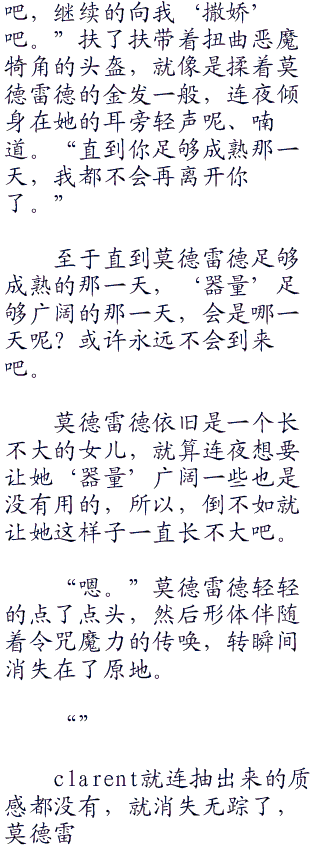 吧，继续的向我‘撒娇’
吧。”扶了扶带着扭曲恶魔
犄角的头盔，就像是揉着莫
德雷德的金发一般，连夜倾
身在她的耳旁轻声呢、喃
道。“直到你足够成熟那一
天，我都不会再离开你
了。”
至于直到莫德雷德足够
成熟的那一天，‘器量’足
够广阔的那一天，会是哪一
天呢？或许永远不会到来
吧。
莫德雷德依旧是一个长
不大的女儿，就算连夜想要
让她‘器量’广阔一些也是
没有用的，所以，倒不如就
让她这样子一直长不大吧。
“嗯。”莫德雷德轻轻
的点了点头，然后形体伴随
着令咒魔力的传唤，转瞬间
消失在了原地。
“”
clarent就连抽出来的质
感都没有，就消失无踪了，
莫德雷